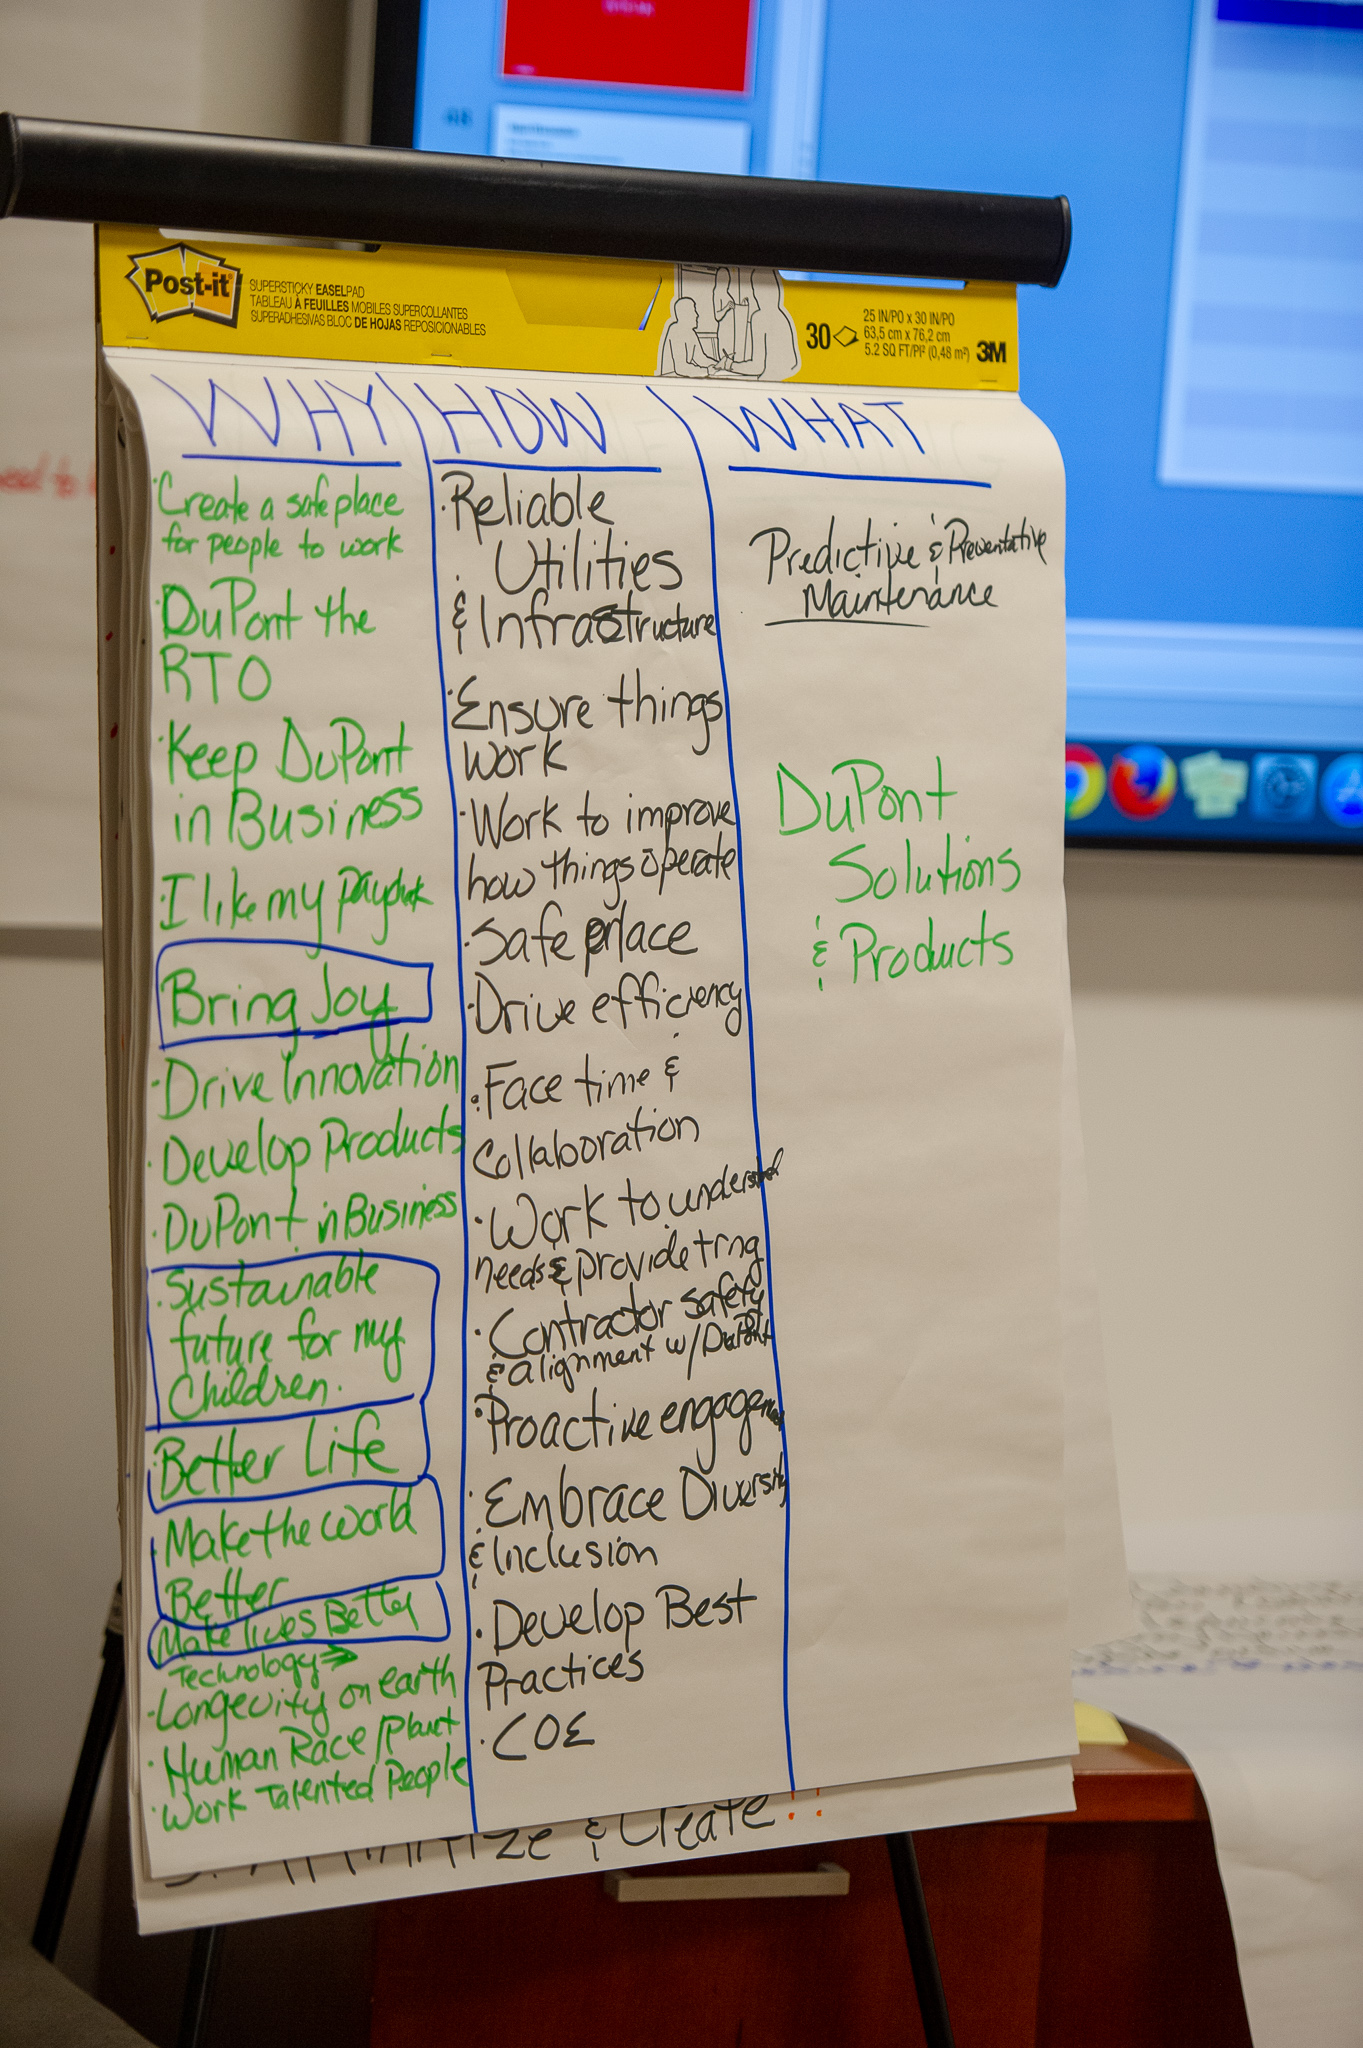 Post-it
SUPERSTICKY EASELPAD
TABLEAU À FEUILLES MOBILES SUPERCOLLANTES
SUPERADHESIVAS BLOC DE HOJAS REPOSICIONABLES
30
25 IN/PO x 30 IN/PO
63,5 cm x 76,2 cm
5.2 SQ FT/PI² (0,48 m²)
3M
WHY
·Create a safe place
for people to work
·DuPont the
RTO
·Keep DuPont
in Business
·I like my paychek
Bring Joy
·Drive Innovation
·Develop Products
·DuPont in Business
·Sustainable
future for my
Children.
·Better Life
·Make the world
Better
·Make lives Better
Technology
·Longevity on earth
·Human Race/Planet
·Work Talented People
HOW
·Reliable
Utilities
& Infrastructure
·Ensure things
work
·Work to improve
how things operate
·Safe place
·Drive efficiency
·Face time &
Collaboration
·Work to understand
needs & provide trng
·Contractor safety
& alignment w/DuPont
·Proactive engagement
·Embrace Diversity
& Inclusion
·Develop Best
Practices
·COE
WHAT
Predictive & Preventative
Maintenance
DuPont
Solutions
& Products
& Create!!